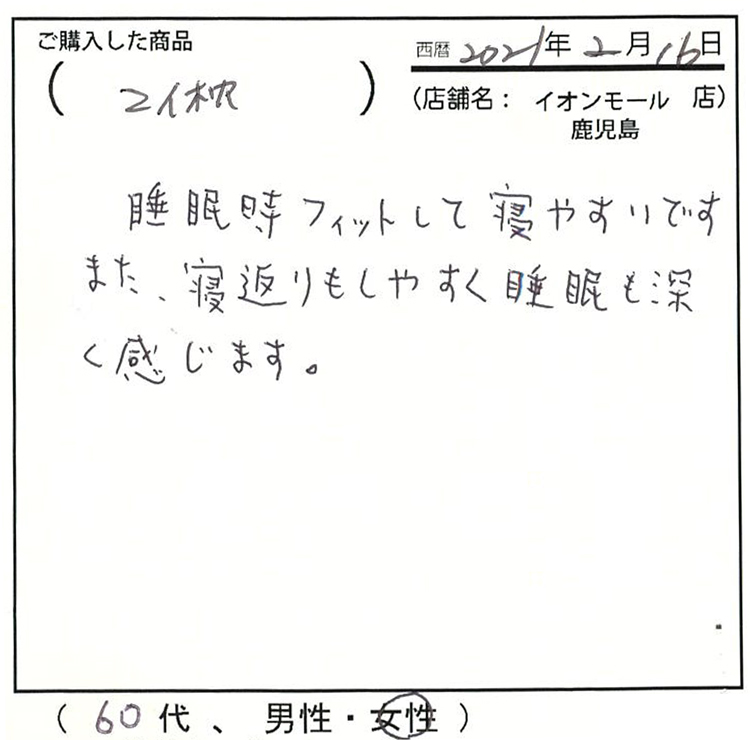 ご購入した商品
西暦 2021年 2月16日
( マイ枕 )
(店舗名： イオンモール 店)
鹿児島
睡眠時フィットして寝やすいです
また、寝返りもしやすく睡眠も深
く感じます。
( 60代 、 男性・女性 )